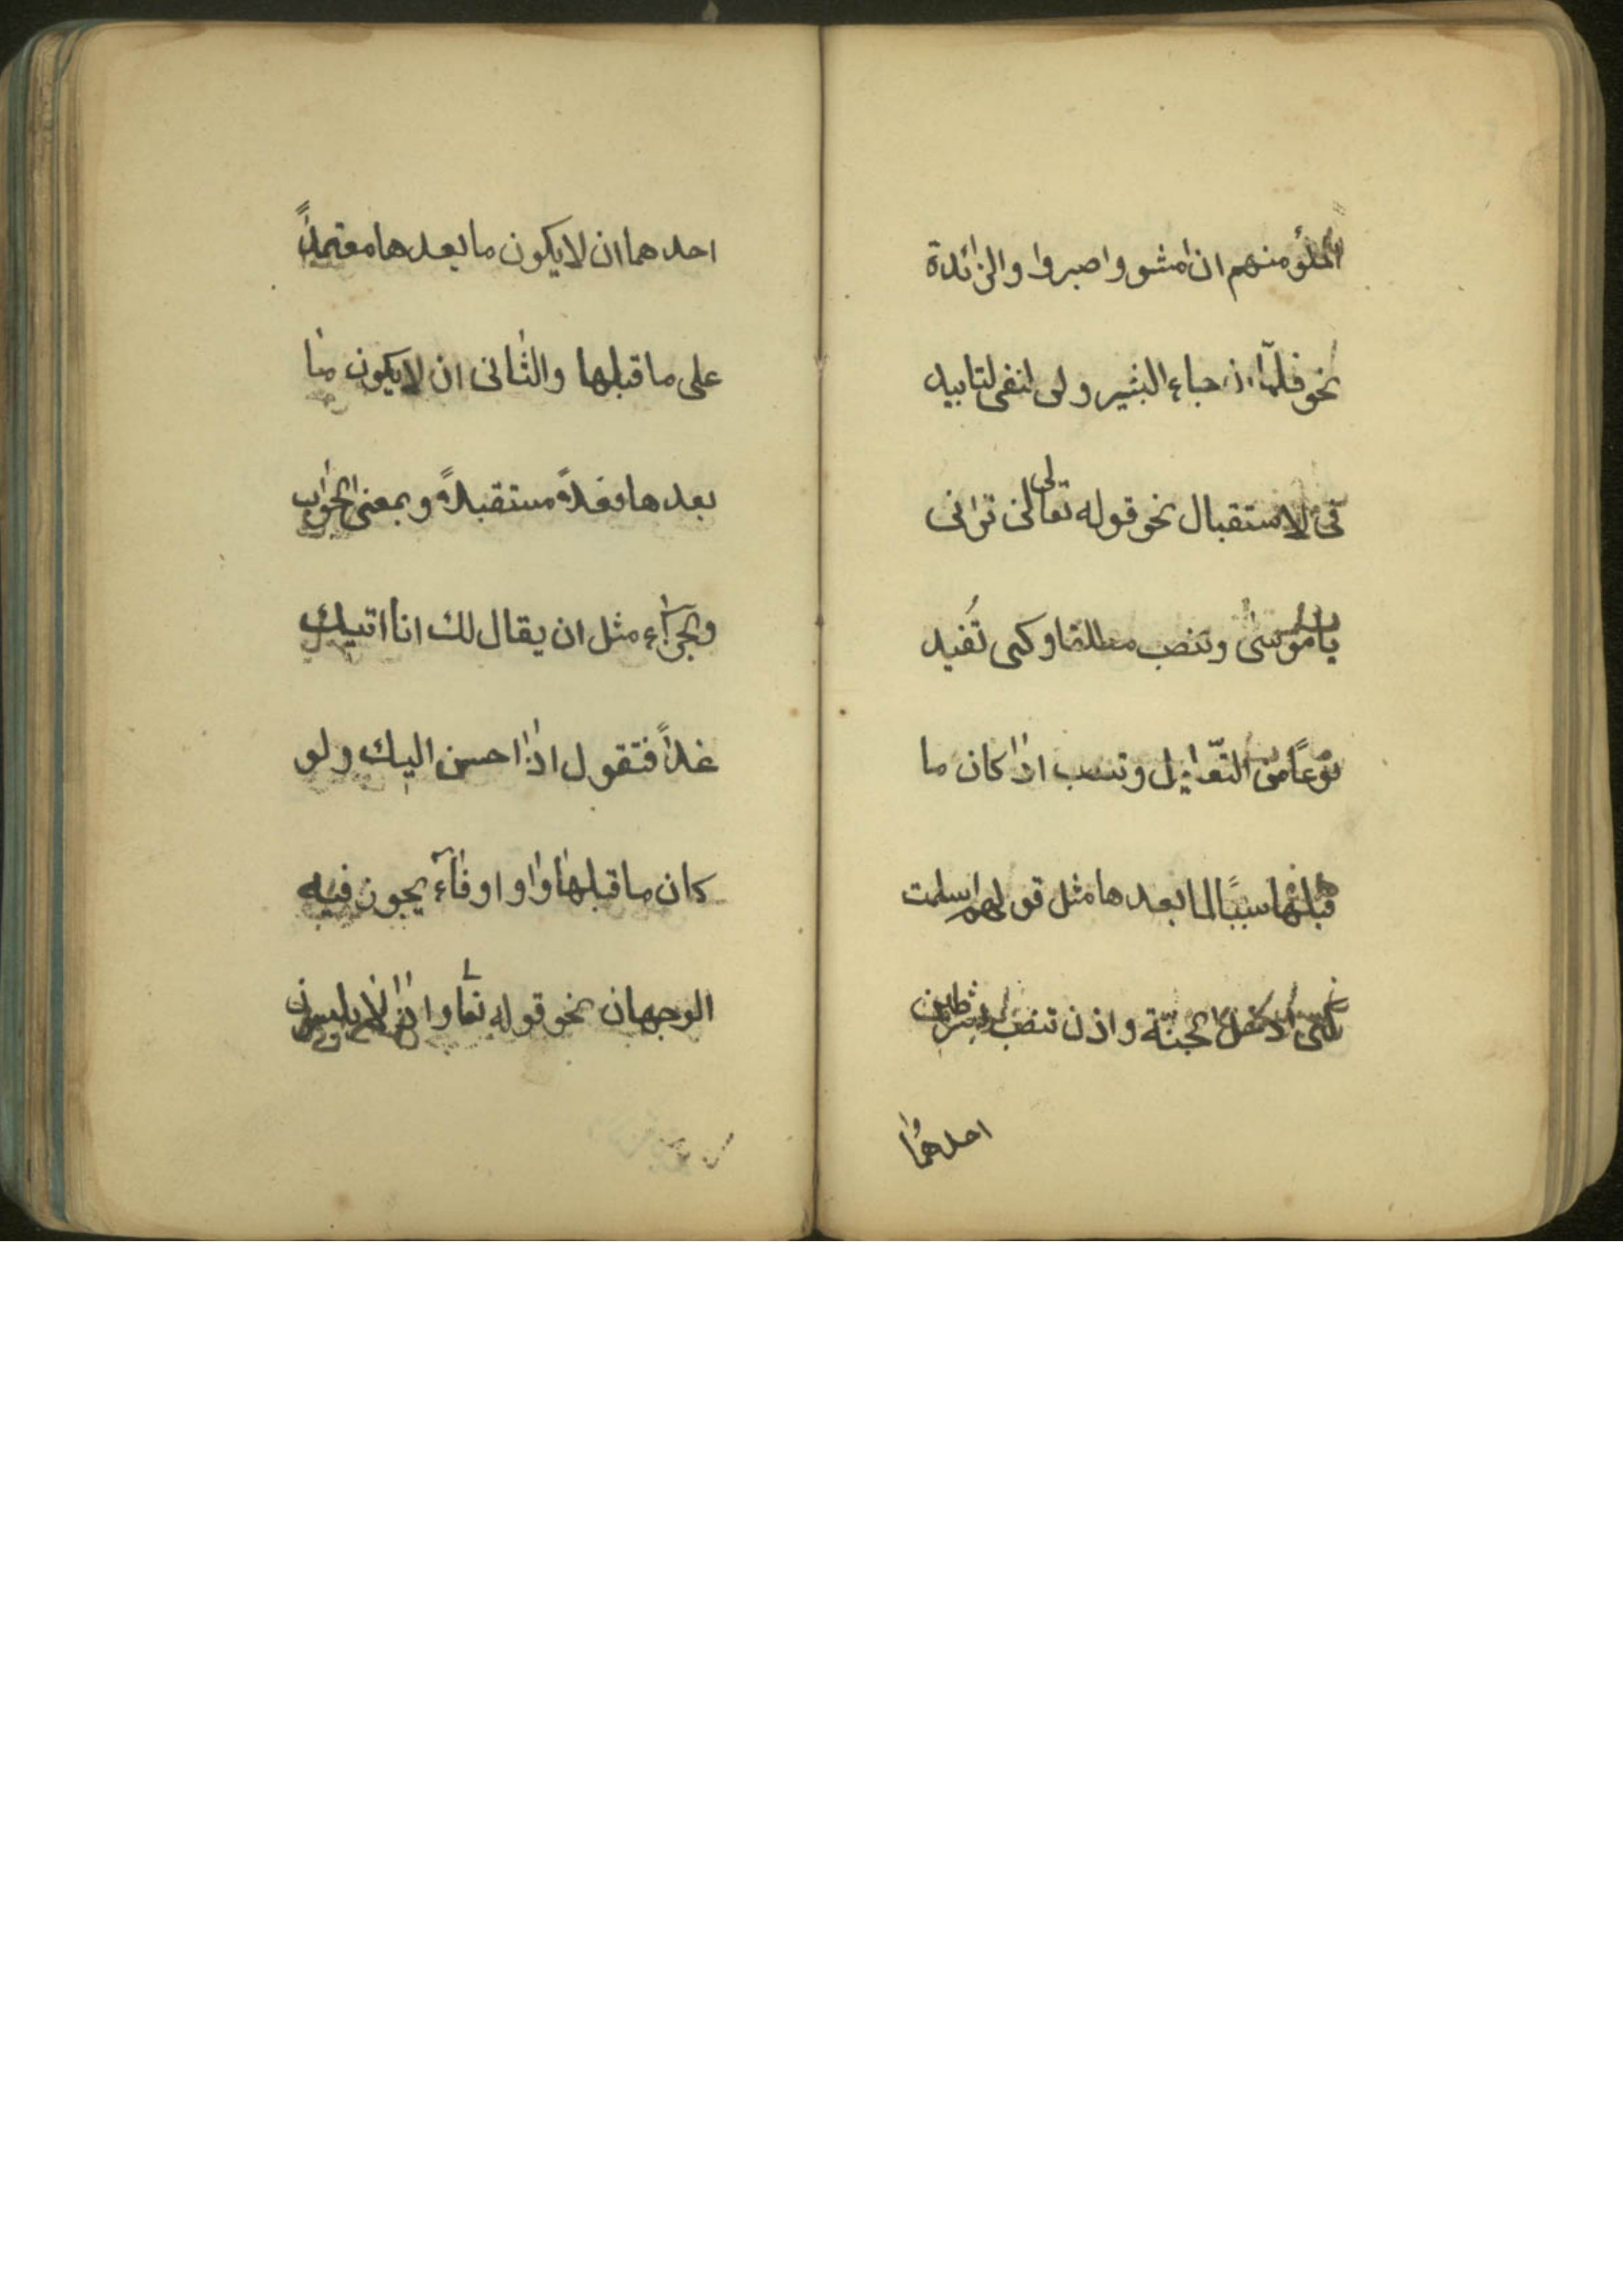 الملؤ منهم ان امشو واصبروا والزائدة
نحو فلمّا ان جاء البشير ولن لنفى لتابيد
فى الاستقبال نحو قوله تعالى لن ترانى
يا موسى وتنصب مطلقا وكى تفيد
نوعًا من التعليل وتنصب اذا كان ما
قبلها سببًا لما بعدها مثل قولهم اسلمت
كى ادخل الجنّة واذن تنصب بشرطين
احدهما
احدهما ان لا يكون ما بعدها معتمداً
على ما قبلها والثانى ان لا يكون ما
بعدها فعلاً مستقبلاً وبمعنى الجواب
والجزآء مثل ان يقال لك انا اتيك
غداً فتقول اذا احسن اليك ولو
كان ما قبلها واو او فآء يجوز فيه
الوجهان نحو قوله تعا واذا لا يلبثون